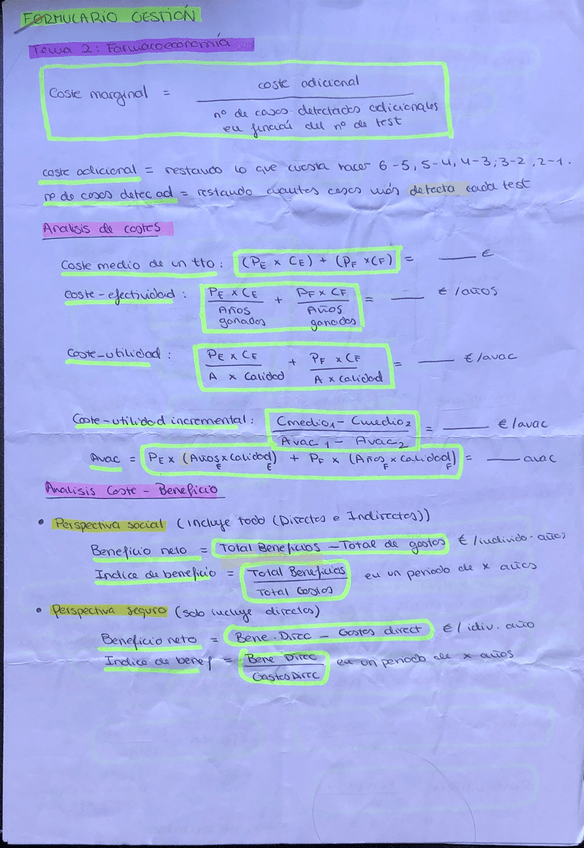 FORMULARIO GESTIÓN
Tema 2: Farmacoeconomía
Coste marginal = coste adicional / nº de casos detectados adicionales
en función del nº de test
coste adicional = restando lo que cuesta hacer 6-5, 5-4, 4-3, 3-2, 2-1.
nº de casos detec ad = restando cuantos casos más detecta cada test
Analisis de costes
Coste medio de un tto: (PE x CE) + (PF x CF) = ___ €
Coste-efectividad: PE x CE / Años ganados + PF x CF / Años ganados = ___ €/años
Coste-utilidad: PE x CE / A x Calidad + PF x CF / A x Calidad = ___ €/avac
Coste-utilidad incremental: Cmedio1 - Cmedio2 / Avac 1 - Avac 2 = ___ €/avac
Avac = PE x (AñosE x CalidadE) + PF x (AñosF x CalidadF) = ___ avac
Analisis Coste - Beneficio
• Perspectiva social (incluye todo (Directos e Indirectos))
Beneficio neto = Total Beneficios - Total de gastos €/individuo · años
Indice de beneficio = Total Beneficios / Total Costos en un periodo de x años
• Perspectiva seguro (solo incluye directos)
Beneficio neto = Bene. Direc - Gastos direct €/idiv. año
Indice de benef = Bene Direc / Gastos Direc en un periodo de x años